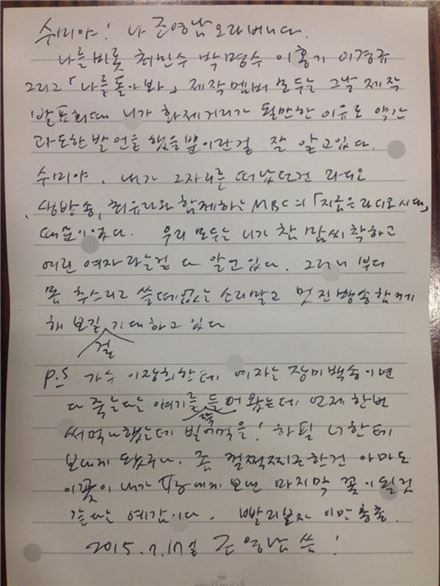 수미야! 나 조영남 오라버니다.
나를 비롯 최민수 박명수 이홍기 이경규
그리고 「나를 돌아봐」 제작멤버 모두는 그날 제작
발표회때 니가 화제거리가 될만한 이유로 약간
과도한 발언을 했을 뿐이란걸 잘 알고있다.
수미야. 내가 그자리를 떠났던건 라디오
생방송, 최유라와 함께하는 MBC의 「지금은 라디오시대」
때문이었다. 우리 모두는 니가 참 맘씨 착하고
여린 여자라는걸 다 알고 있다. 그러니 부디
몸 추스리고 쓸데없는 소리말고 멋진 방송 함께
해 보길 기대하고 있다
걸
P.S 가수 이장희한테 여자는 장미 백송이면
다 죽는다는 얘기를 들어 왔는데 언제 한번
써먹나 했는데 빌어먹을! 하필 너한테
보내게 됐구나. 좀 껄쩍찌근한건 아마도
이꽃이 내가 땅에게 보낸 마지막 꽃이 될것
같다는 예감이다. 빨리보자 이만 총총.
2015.7.17일 조영남 씀!